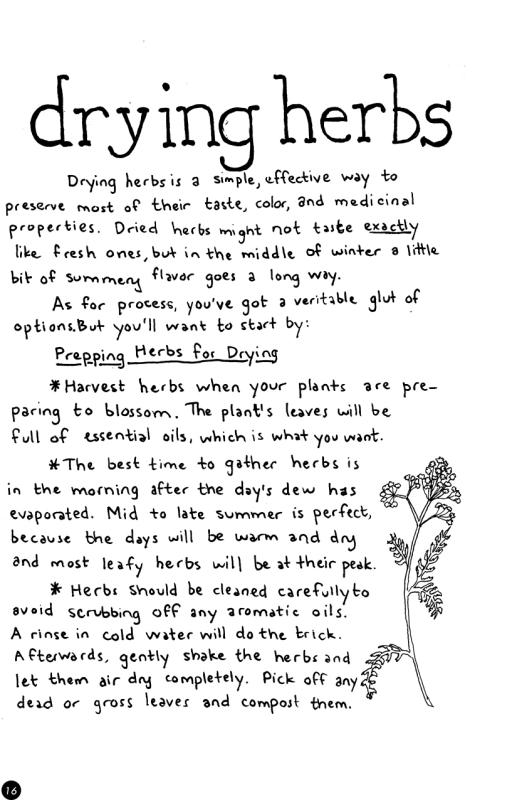 drying herbs
Drying herbs is a simple, effective way to
preserve most of their taste, color, and medicinal
properties. Dried herbs might not taste exactly
like fresh ones, but in the middle of winter a little
bit of summery flavor goes a long way.
As for process, you've got a veritable glut of
options. But you'll want to start by:
Prepping Herbs for Drying
*Harvest herbs when your plants are pre-
paring to blossom. The plant's leaves will be
full of essential oils, which is what you want.
*The best time to gather herbs is
in the morning after the day's dew has
evaporated. Mid to late summer is perfect,
because the days will be warm and dry
and most leafy herbs will be at their peak.
* Herbs should be cleaned carefully to
avoid scrubbing off any aromatic oils.
A rinse in cold water will do the trick.
Afterwards, gently shake the herbs and
let them air dry completely. Pick off any
dead or gross leaves and compost them.
16